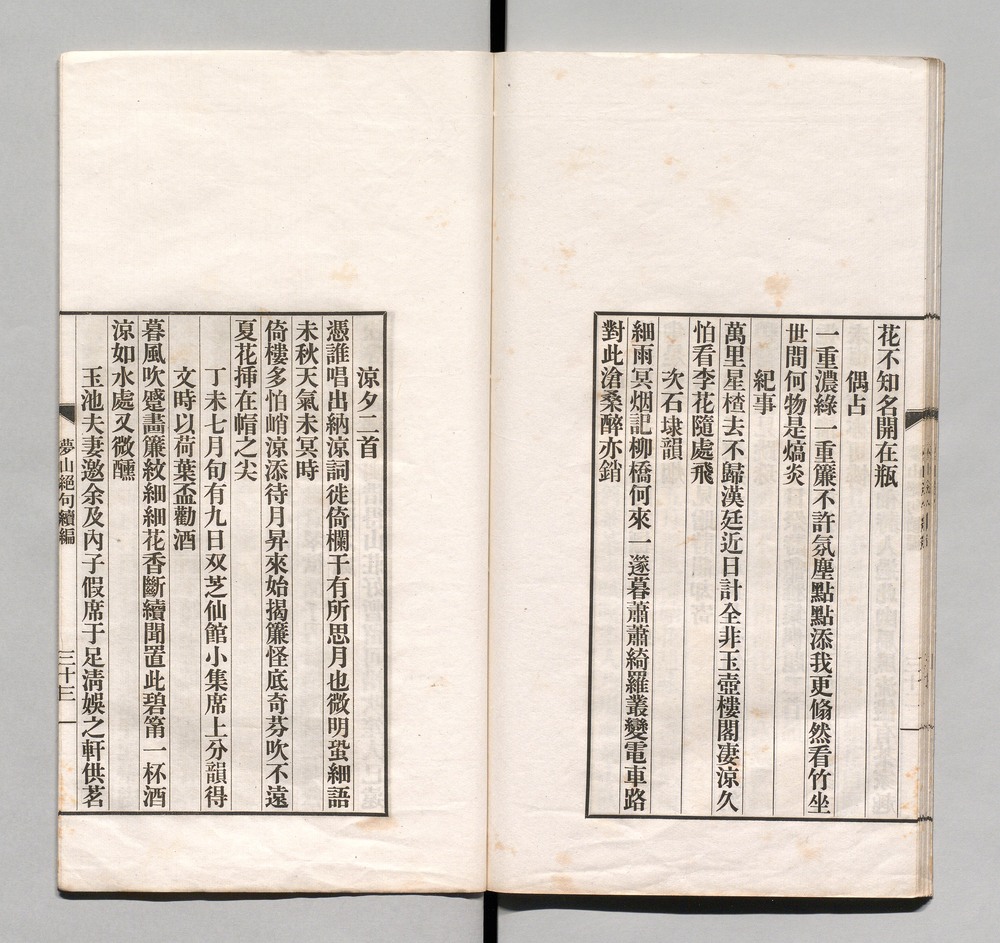 花不知名開在瓶
偶占
一重濃綠一重簾不許氛塵點點添我更翛然看竹坐
世間何物是熇炎
紀事
萬里星楂去不歸漢廷近日計全非玉壺樓閣凄涼久
怕看李花隨處飛
次石埭韻
細雨冥烟記柳橋何來一邃暮蕭蕭綺羅叢變電車路
對此滄桑醉亦銷
涼夕二首
憑誰唱出納涼詞徙倚欄干有所思月也微明蛩細語
未秋天氣未冥時
倚樓多怕峭涼添待月昇來始揭簾怪底奇芬吹不遠
夏花揷在幘之尖
丁未七月旬有九日双芝仙館小集席上分韻得
文時以荷葉盃勸酒
暮風吹蹙畵簾紋細細花香斷續聞置此碧筩一杯酒
涼如水處又微醺
玉池夫妻邀余及內子假席于足淸娛之軒供茗
夢山絕句續編
三十三